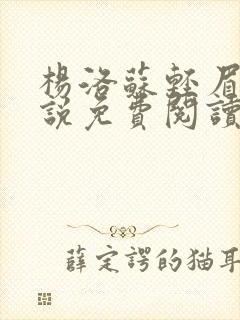 楊洛蘇輕眉
說免費閱讀
薛定諤的猫耳